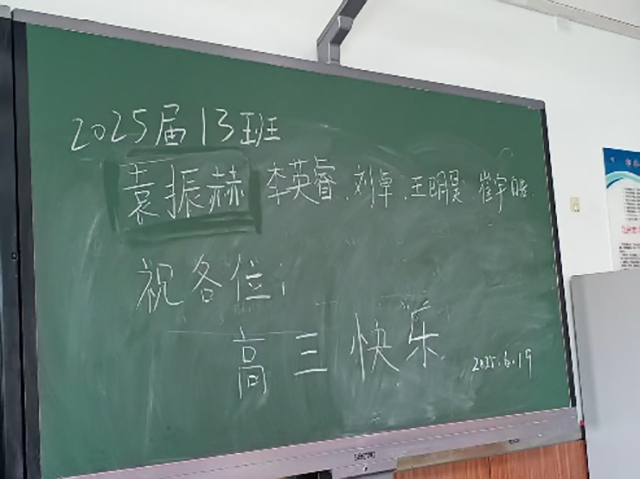 2025届13班
袁振赫 李英睿、刘卓、王明昊、崔宇
祝各位:
高三快乐
2025.6.19